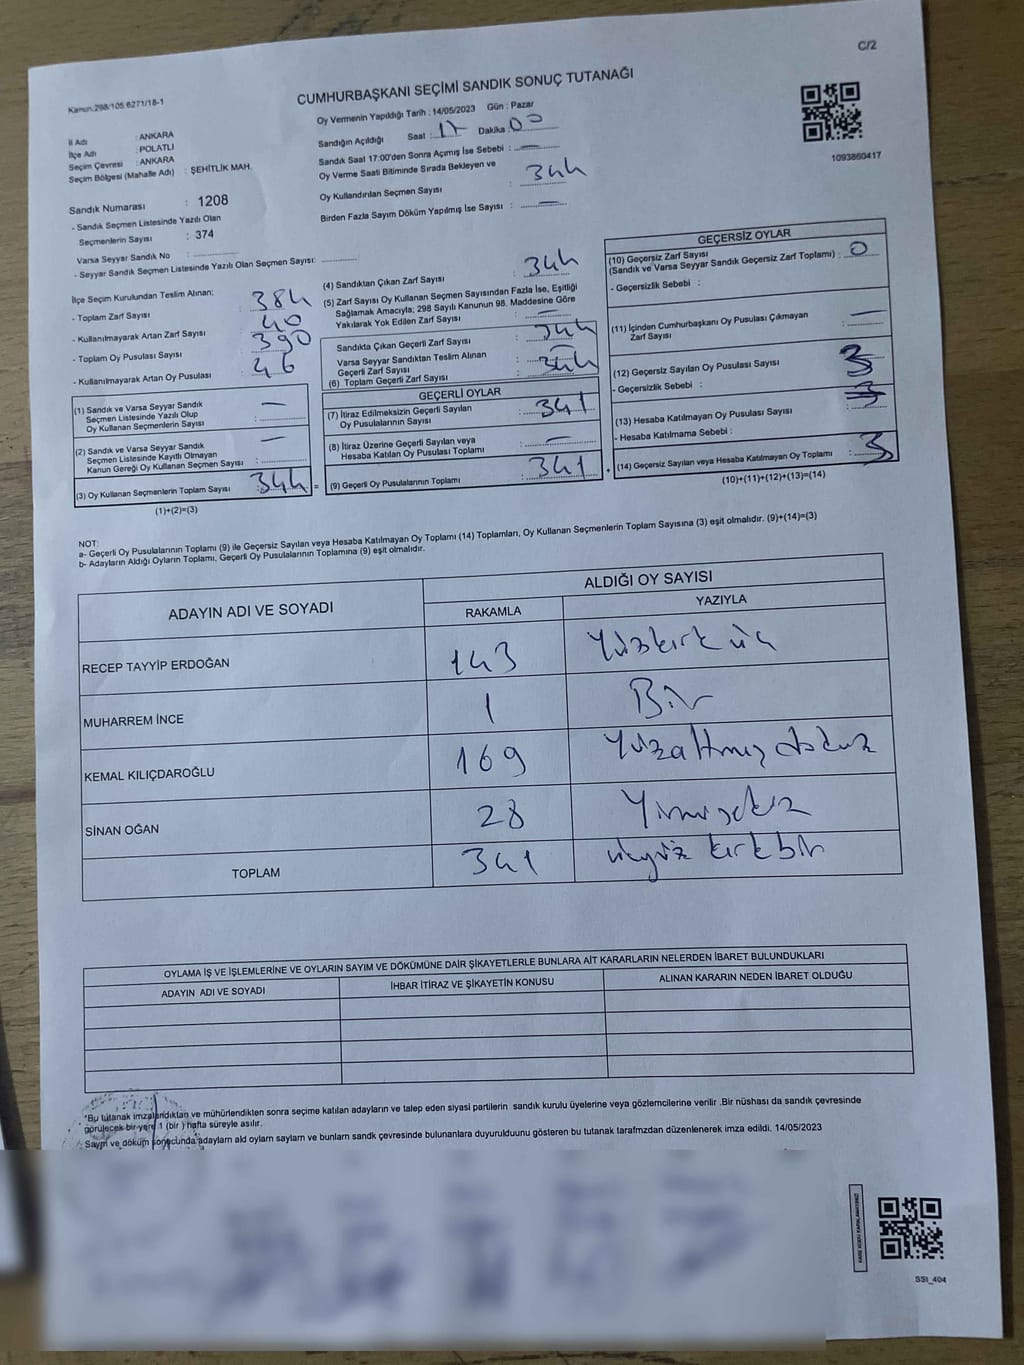 C/2
Kanun.298/105 6271/18-1
CUMHURBAŞKANI SEÇİMİ SANDIK SONUÇ TUTANAĞI
İl Adı : ANKARA
İlçe Adı : POLATLI
Seçim Çevresi : ANKARA
Seçim Bölgesi (Mahalle Adı) : ŞEHİTLİK MAH.
Sandık Numarası : 1208
- Sandık Seçmen Listesinde Yazılı Olan
Seçmenlerin Sayısı : 374
Varsa Seyyar Sandık No :
- Seyyar Sandık Seçmen Listesinde Yazılı Olan Seçmen Sayısı:
Oy Vermenin Yapıldığı Tarih : 14/05/2023 Gün : Pazar
Sandığın Açıldığı Saat : 17 Dakika 00
Sandık Saat 17:00'den Sonra Açımış İse Sebebi : —
Oy Verme Saati Bitiminde Sırada Bekleyen ve
Oy Kullandırılan Seçmen Sayısı : 344
Birden Fazla Sayım Döküm Yapılmış İse Sayısı : —
1093860417
İlçe Seçim Kurulundan Teslim Alınan;
- Toplam Zarf Sayısı 384
- Kullanılmayarak Artan Zarf Sayısı 40
- Toplam Oy Pusulası Sayısı 390
- Kullanılmayarak Artan Oy Pusulası 46
(1) Sandık ve Varsa Seyyar Sandık
Seçmen Listesinde Yazılı Olup
Oy Kullanan Seçmenlerin Sayısı : —
(2) Sandık ve Varsa Seyyar Sandık
Seçmen Listesinde Kayıtlı Olmayan
Kanun Gereği Oy Kullanan Seçmen Sayısı : —
(3) Oy Kullanan Seçmenlerin Toplam Sayısı : 344 =
(1)+(2)=(3)
(4) Sandıktan Çıkan Zarf Sayısı : 344
(5) Zarf Sayısı Oy Kullanan Seçmen Sayısından Fazla İse, Eşitliği
Sağlamak Amacıyla; 298 Sayılı Kanunun 98. Maddesine Göre
Yakılarak Yok Edilen Zarf Sayısı : —
Sandıkta Çıkan Geçerli Zarf Sayısı : 344
Varsa Seyyar Sandıktan Teslim Alınan
Geçerli Zarf Sayısı : —
(6) Toplam Geçerli Zarf Sayısı : 344
GEÇERLİ OYLAR
(7) İtiraz Edilmeksizin Geçerli Sayılan
Oy Pusulalarının Sayısı : 341
(8) İtiraz Üzerine Geçerli Sayılan veya
Hesaba Katılan Oy Pusulası Toplamı : —
(9) Geçerli Oy Pusulalarının Toplamı : 341 +
GEÇERSİZ OYLAR
(10) Geçersiz Zarf Sayısı
(Sandık ve Varsa Seyyar Sandık Geçersiz Zarf Toplamı) : 0
- Geçersizlik Sebebi :
(11) İçinden Cumhurbaşkanı Oy Pusulası Çıkmayan
Zarf Sayısı : —
(12) Geçersiz Sayılan Oy Pusulası Sayısı : 3
- Geçersizlik Sebebi :
(13) Hesaba Katılmayan Oy Pusulası Sayısı :
- Hesaba Katılmama Sebebi :
(14) Geçersiz Sayılan veya Hesaba Katılmayan Oy Toplamı : 3
(10)+(11)+(12)+(13)=(14)
NOT:
a- Geçerli Oy Pusulalarının Toplamı (9) ile Geçersiz Sayılan veya Hesaba Katılmayan Oy Toplamı (14) Toplamları, Oy Kullanan Seçmenlerin Toplam Sayısına (3) eşit olmalıdır. (9)+(14)=(3)
b- Adayların Aldığı Oyların Toplamı, Geçerli Oy Pusulalarının Toplamına (9) eşit olmalıdır.
ADAYIN ADI VE SOYADI
ALDIĞI OY SAYISI
RAKAMLA YAZIYLA
RECEP TAYYİP ERDOĞAN 143 Yüzkırk üç
MUHARREM İNCE 1 Bir
KEMAL KILIÇDAROĞLU 169 Yüzaltmış dokuz
SİNAN OĞAN 28 Yirmisekiz
TOPLAM 341 üçyüz kırkbir
OYLAMA İŞ VE İŞLEMLERİNE VE OYLARIN SAYIM VE DÖKÜMÜNE DAİR ŞİKAYETLERLE BUNLARA AİT KARARLARIN NELERDEN İBARET BULUNDUKLARI
ADAYIN ADI VE SOYADI İHBAR İTİRAZ VE ŞİKAYETİN KONUSU ALINAN KARARIN NEDEN İBARET OLDUĞU
*Bu tutanak imzalandıktan ve mühürlendikten sonra seçime katılan adayların ve talep eden siyasi partilerin sandık kurulu üyelerine veya gözlemcilerine verilir .Bir nüshası da sandık çevresinde
görülecek bir yere 1 (bir ) hafta süreyle asılır.
Sayım ve döküm sonucunda adayların ald oyların sayların ve bunların sandk çevresinde bulunanlara duyurulduunu gösteren bu tutanak tarafmzdan düzenlenerek imza edildi. 14/05/2023
SSI_404